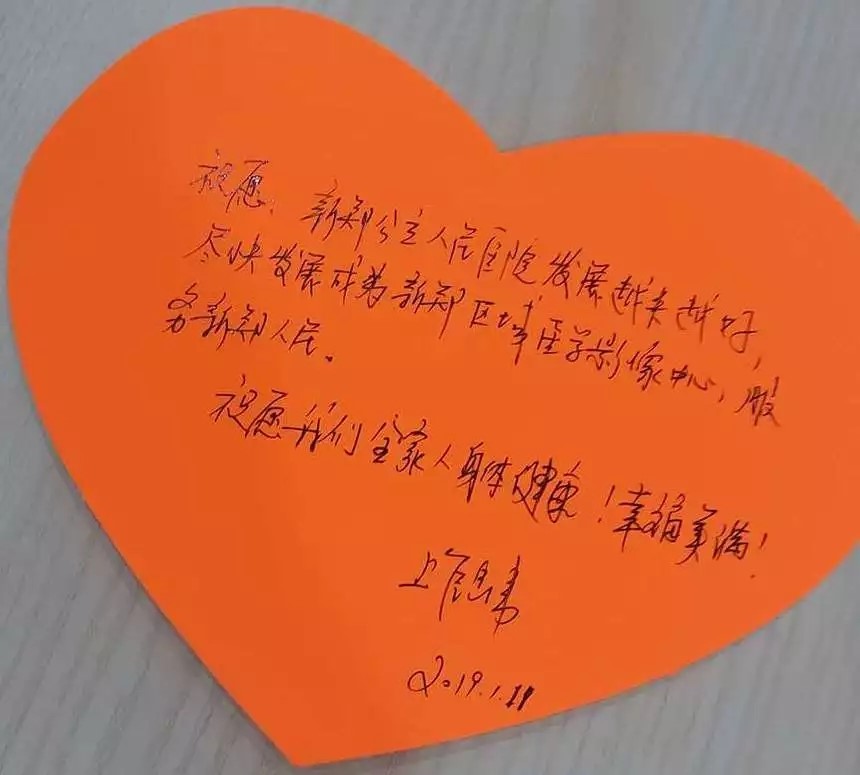 祝愿、新郑公立人民医院发展越来越好,
尽快发展成为新郑区域医学影像中心,服
务新郑人民。
祝愿我们全家人身体健康!幸福美满!
上官
2019.1.